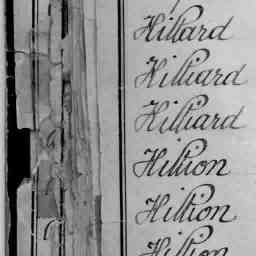 Hillard
Hilliard
Hilliard
Hillion
Hillion
Hillion